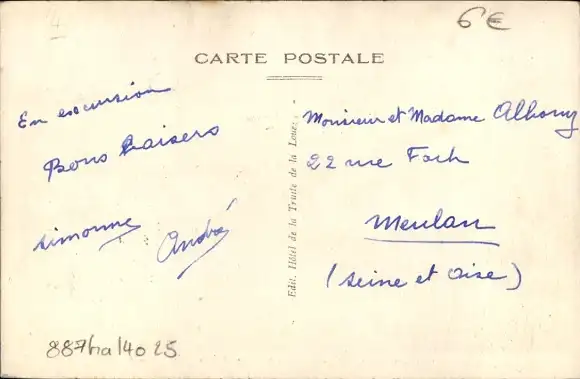 4
6€
CARTE POSTALE
En excursion
Bons baisers
Simonne André
Monsieur et Madame
22 rue Foch
Meulan
(Seine et Oise)
Edit. Hôtel de la Truite de la Loue.